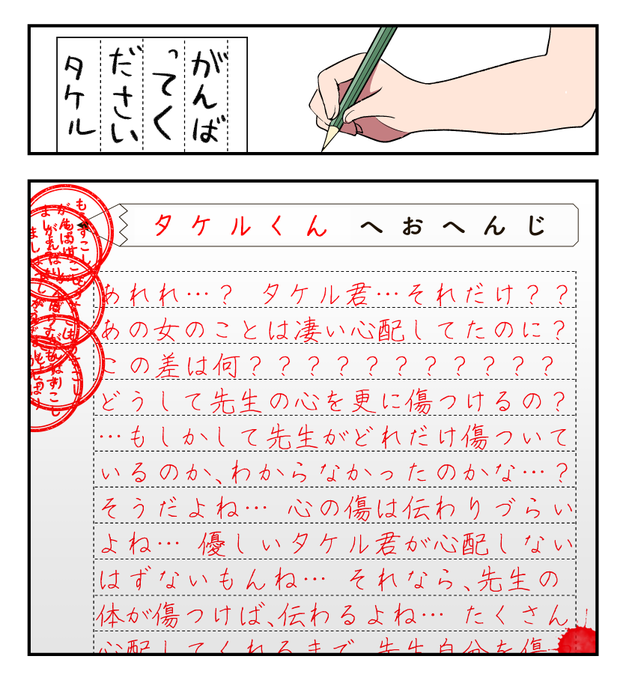 がんば
ってく
ださい
タケル
タケルくん へおへんじ
あれれ…？ タケル君…それだけ？？
あの女のことは凄い心配してたのに？
この差は何？？？？？？？？？？？
どうして先生の心を更に傷つけるの？
…もしかして先生がどれだけ傷ついて
いるのか、わからなかったのかな…？
そうだよね… 心の傷は伝わりづらい
よね… 優しいタケル君が心配しない
はずないもんね… それなら、先生の
体が傷つけば、伝わるよね… たくさん
心配してくれるまで 先生自分を傷